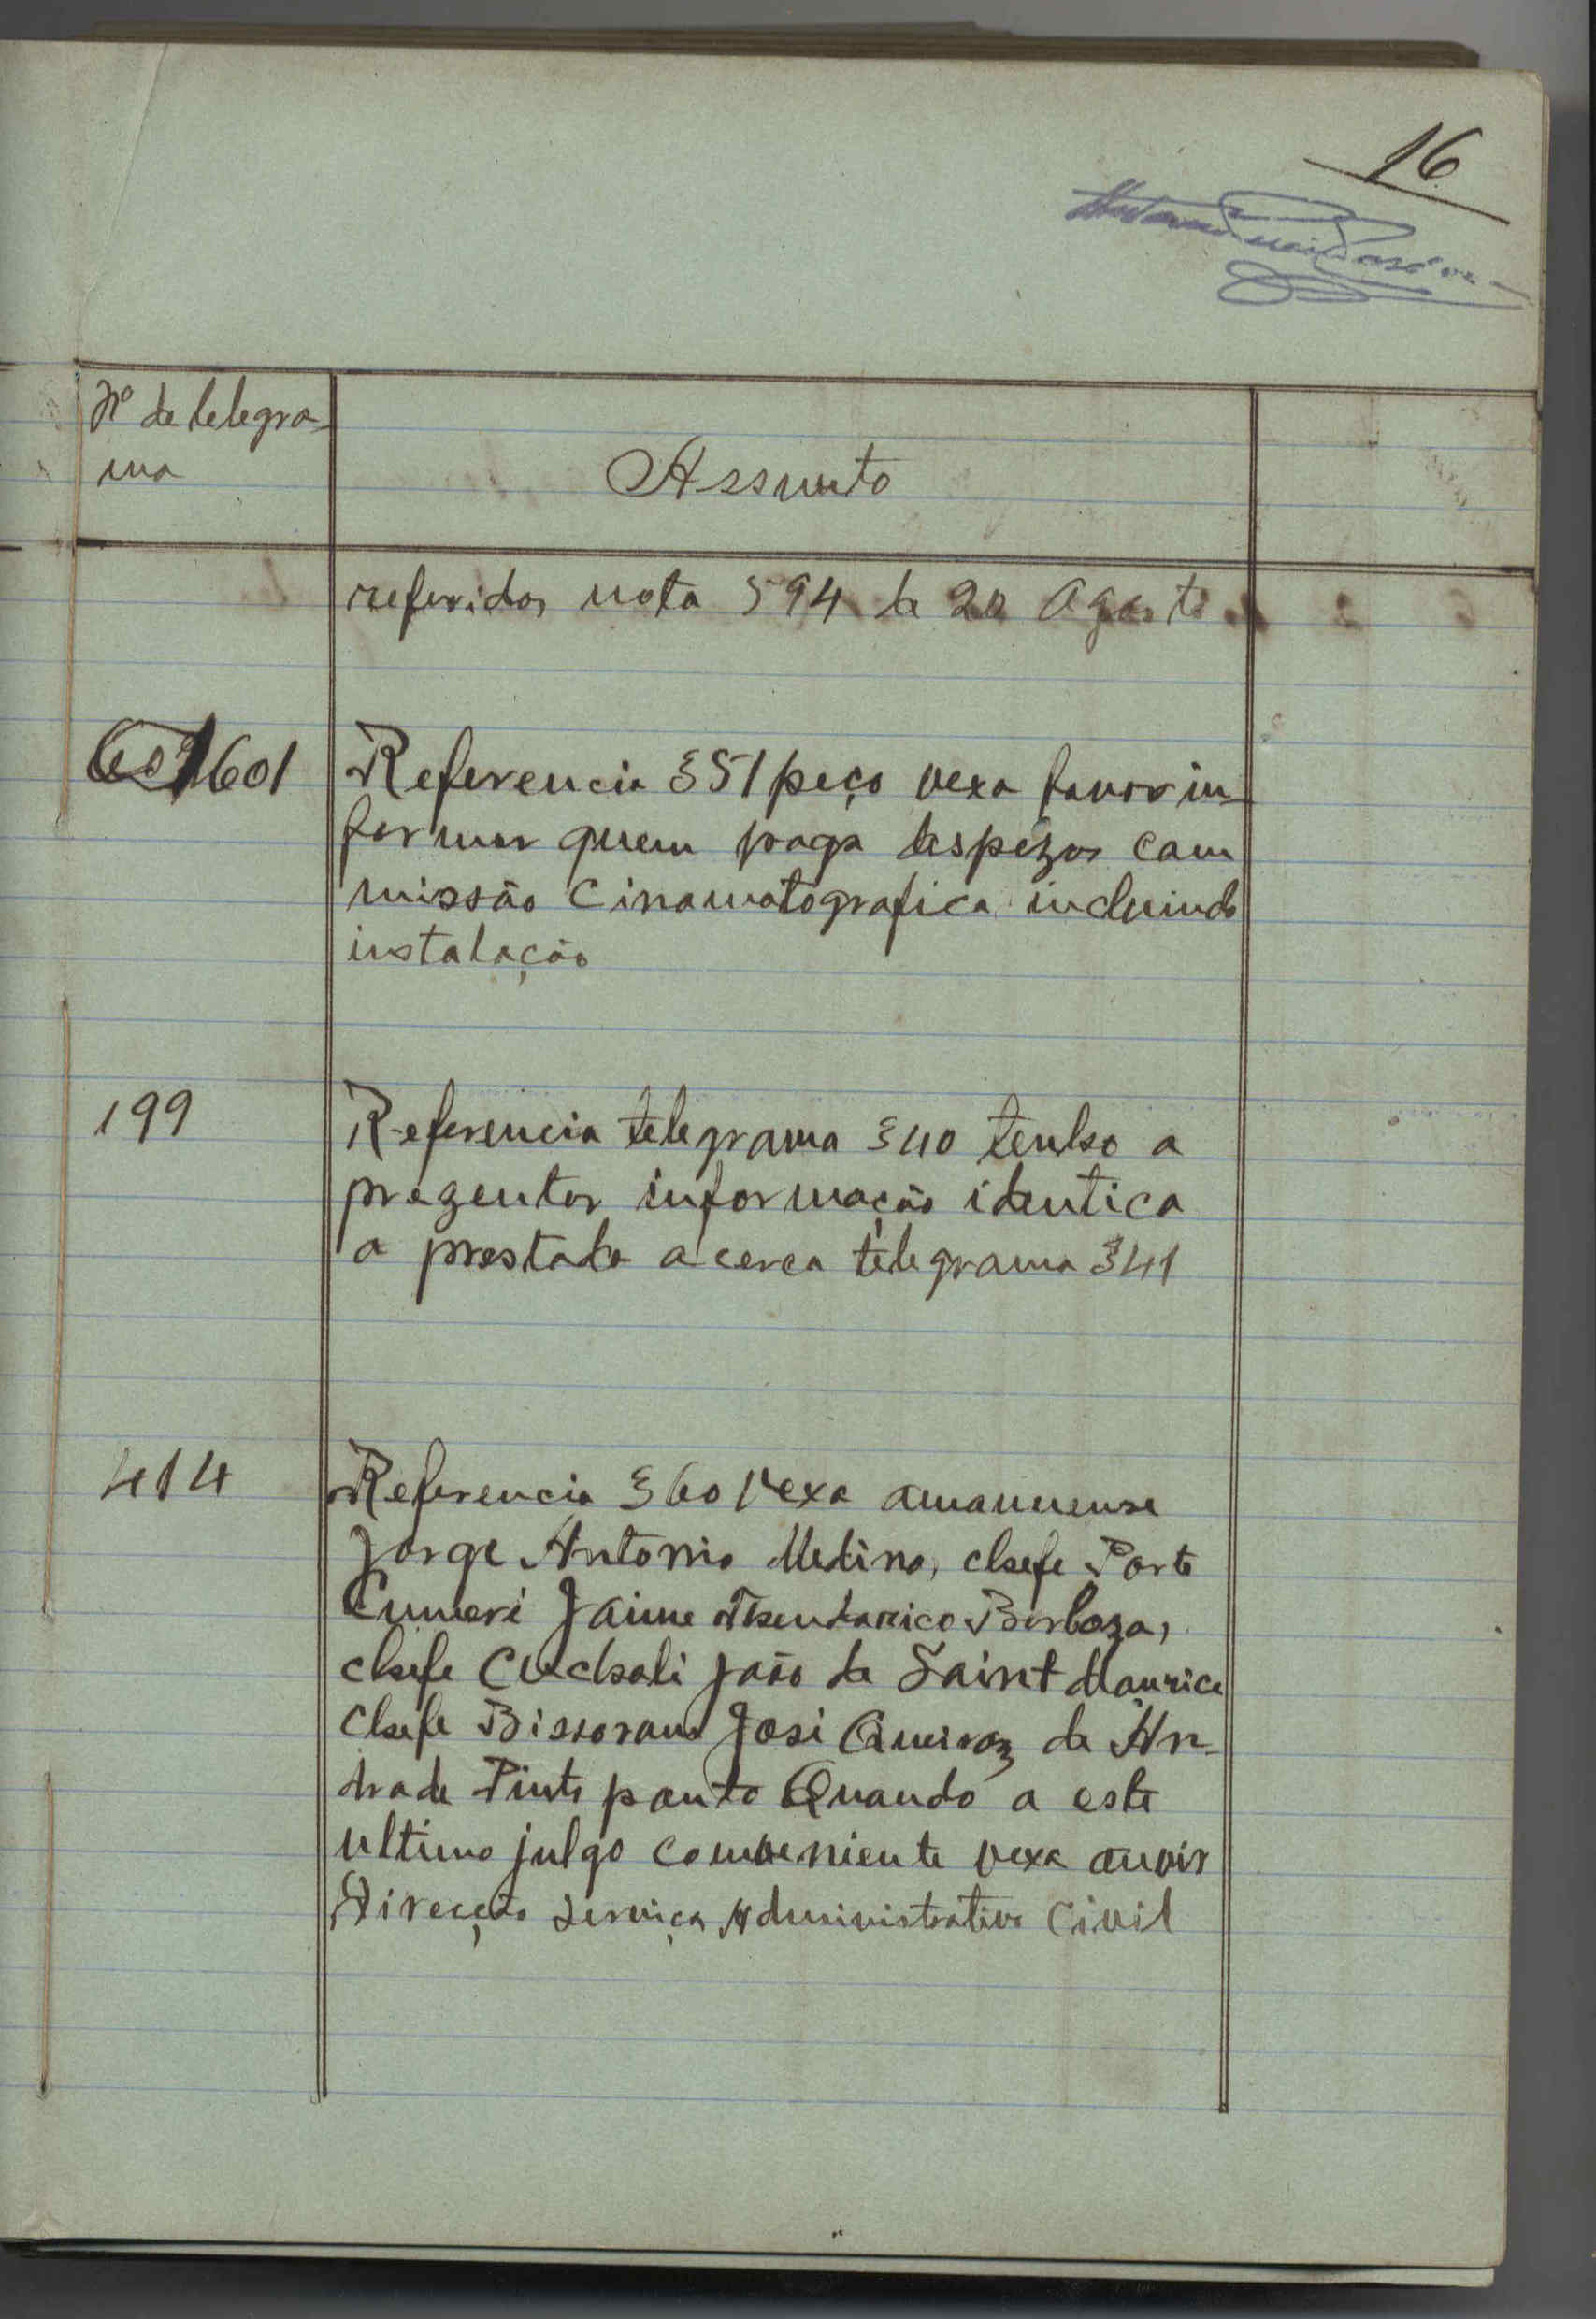 16
Nº de telegra-
ma
Assunto
referidos nota 594 de 20 Agosto
601
Referencia 351 peço vexa favor in-
formar quem paga despezas com
missão Cinamatografica incluindo
instalação
199
Referencia telegrama 340 tenho a
prezentar informação identica
a prestada acerca telegrama 341
414
Referencia 360 Vexa amanuense
Jorge Antonio Medina, chefe Porto
Cumeri Jaime Barboza,
chefe Cuchali João de Saint Maurice
Chefe Bissoram José Queiroz de An-
drade Pinto ponto Quando a este
ultimo julgo conveniente vexa ouvir
Direcção Serviços Administrativo Civil